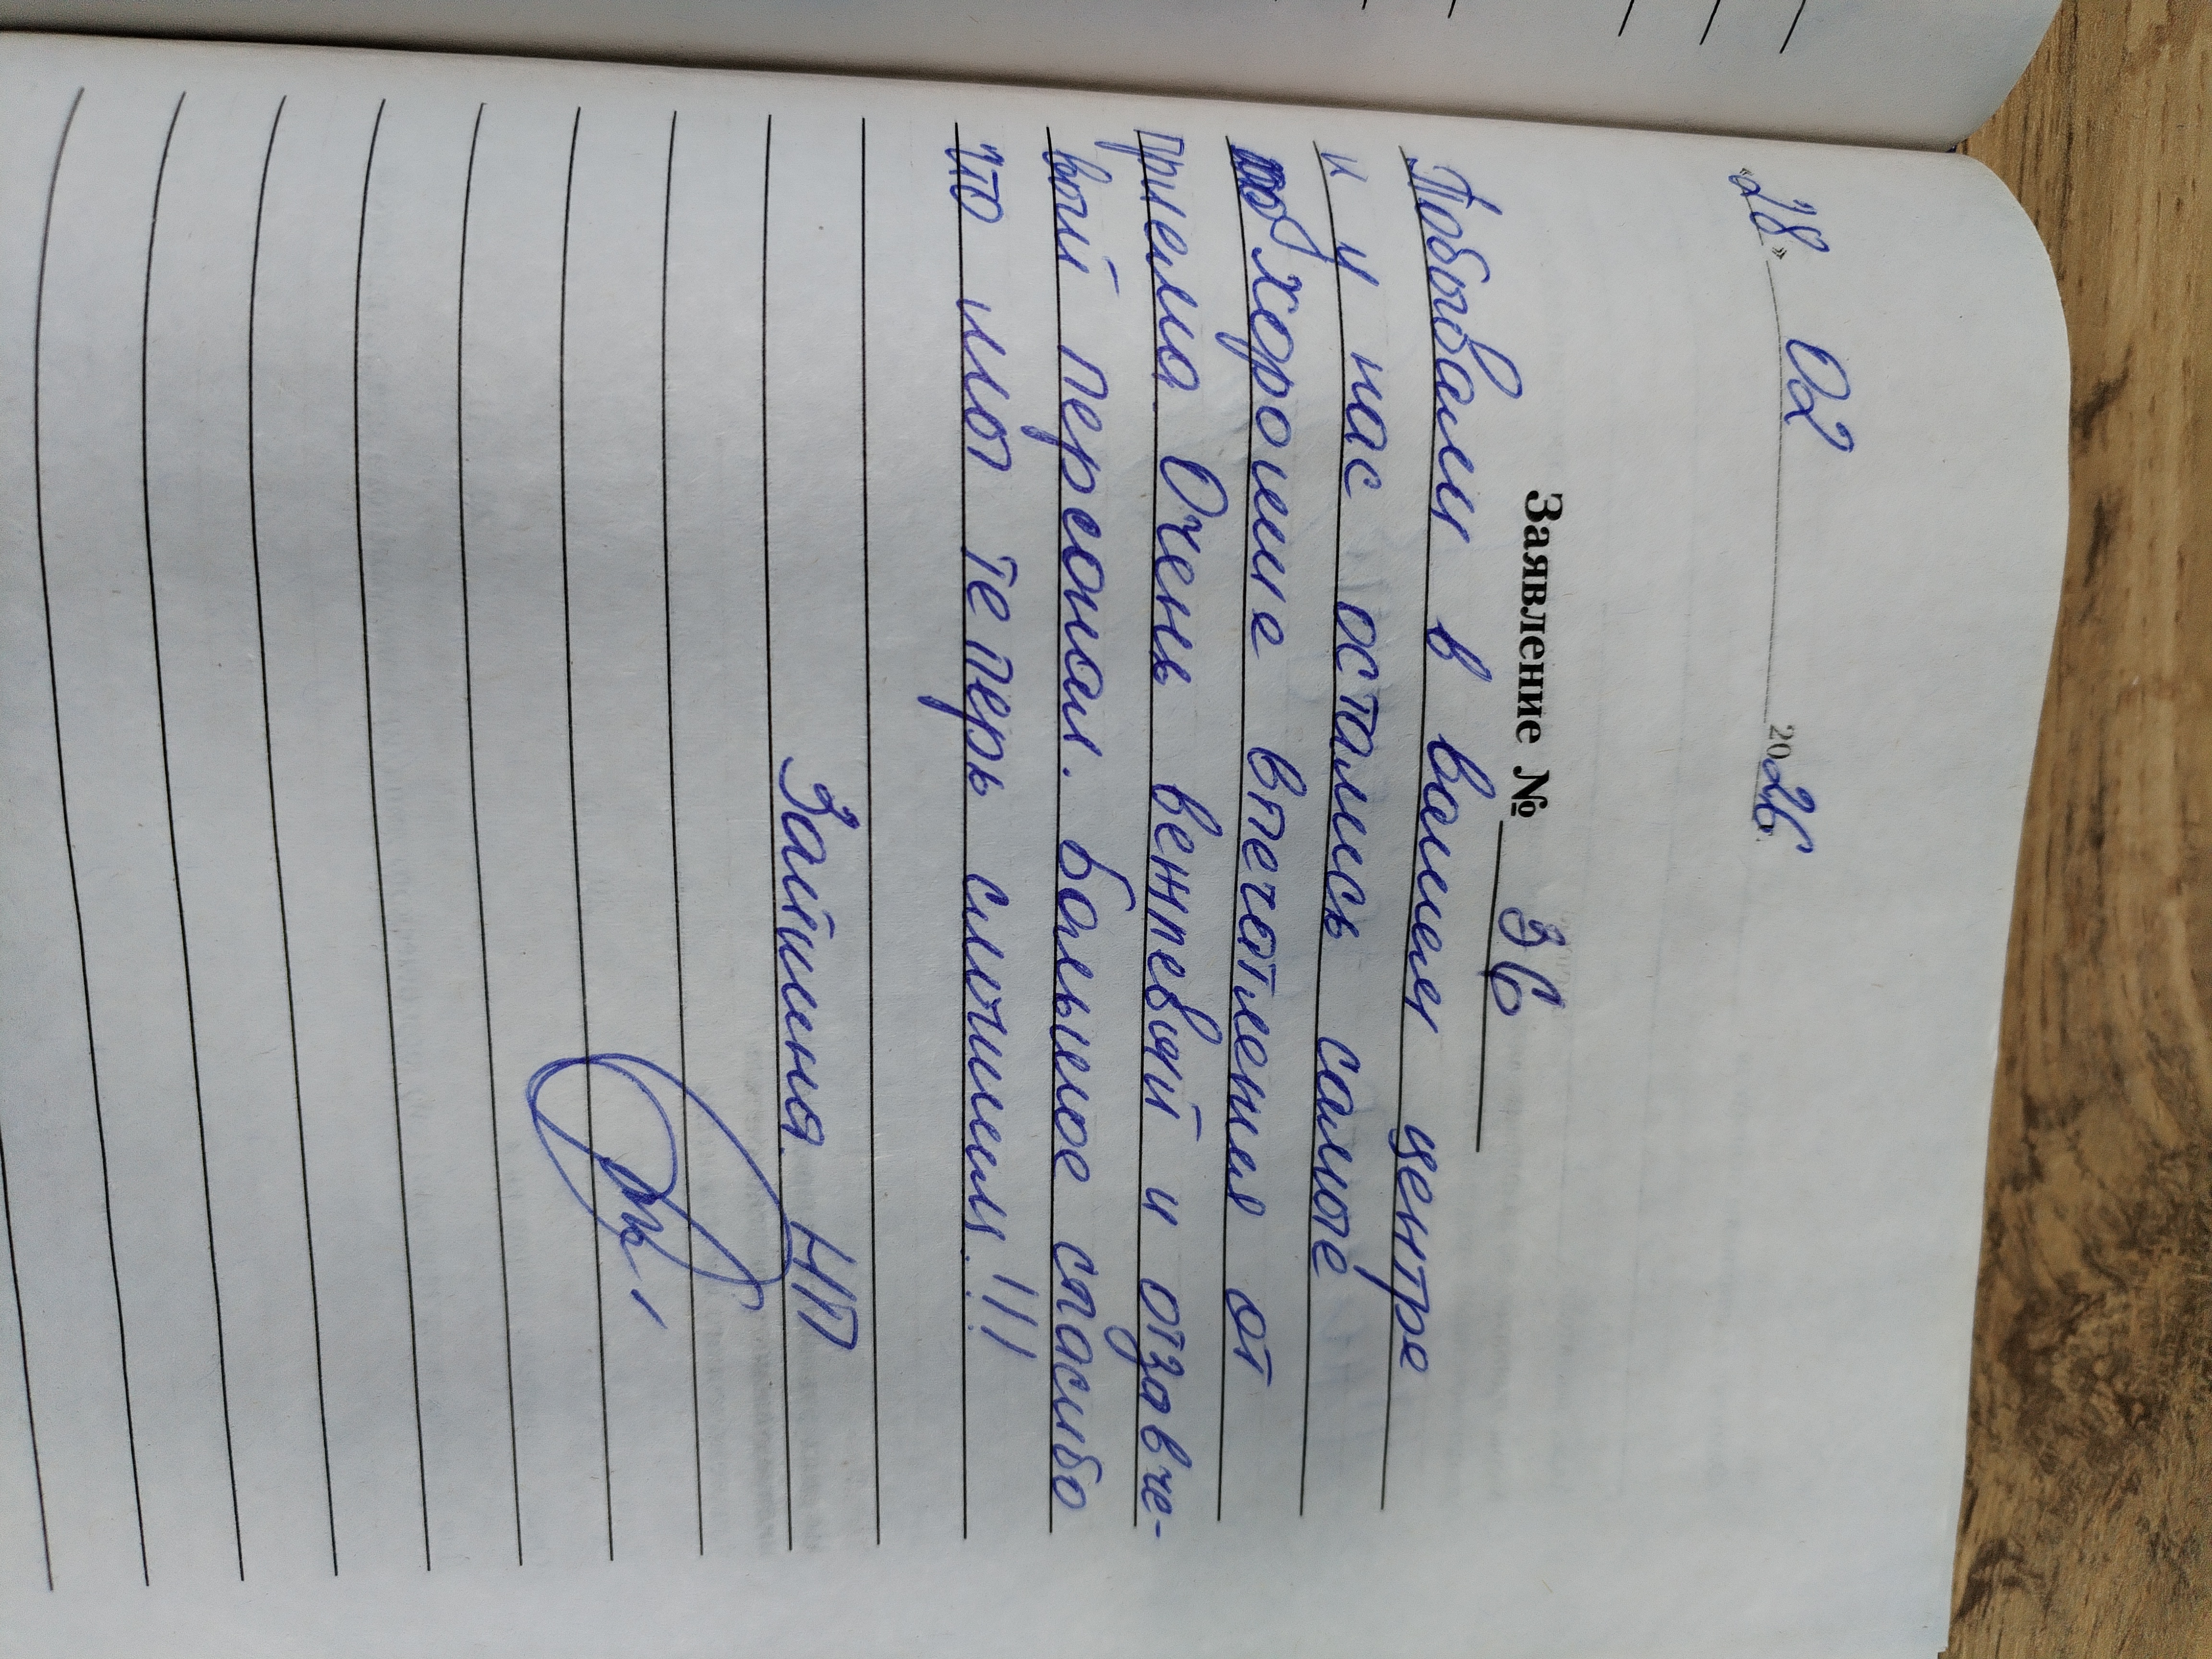 «28» 02 2026
Заявление № 36
Побывали в вашем центре
и у нас остались самое
хорошие впечатления от
приема. Очень вежлевый и отзовче-
вый персонал. Большое спасибо
что мы теперь слышим!!!
Зайшена НП